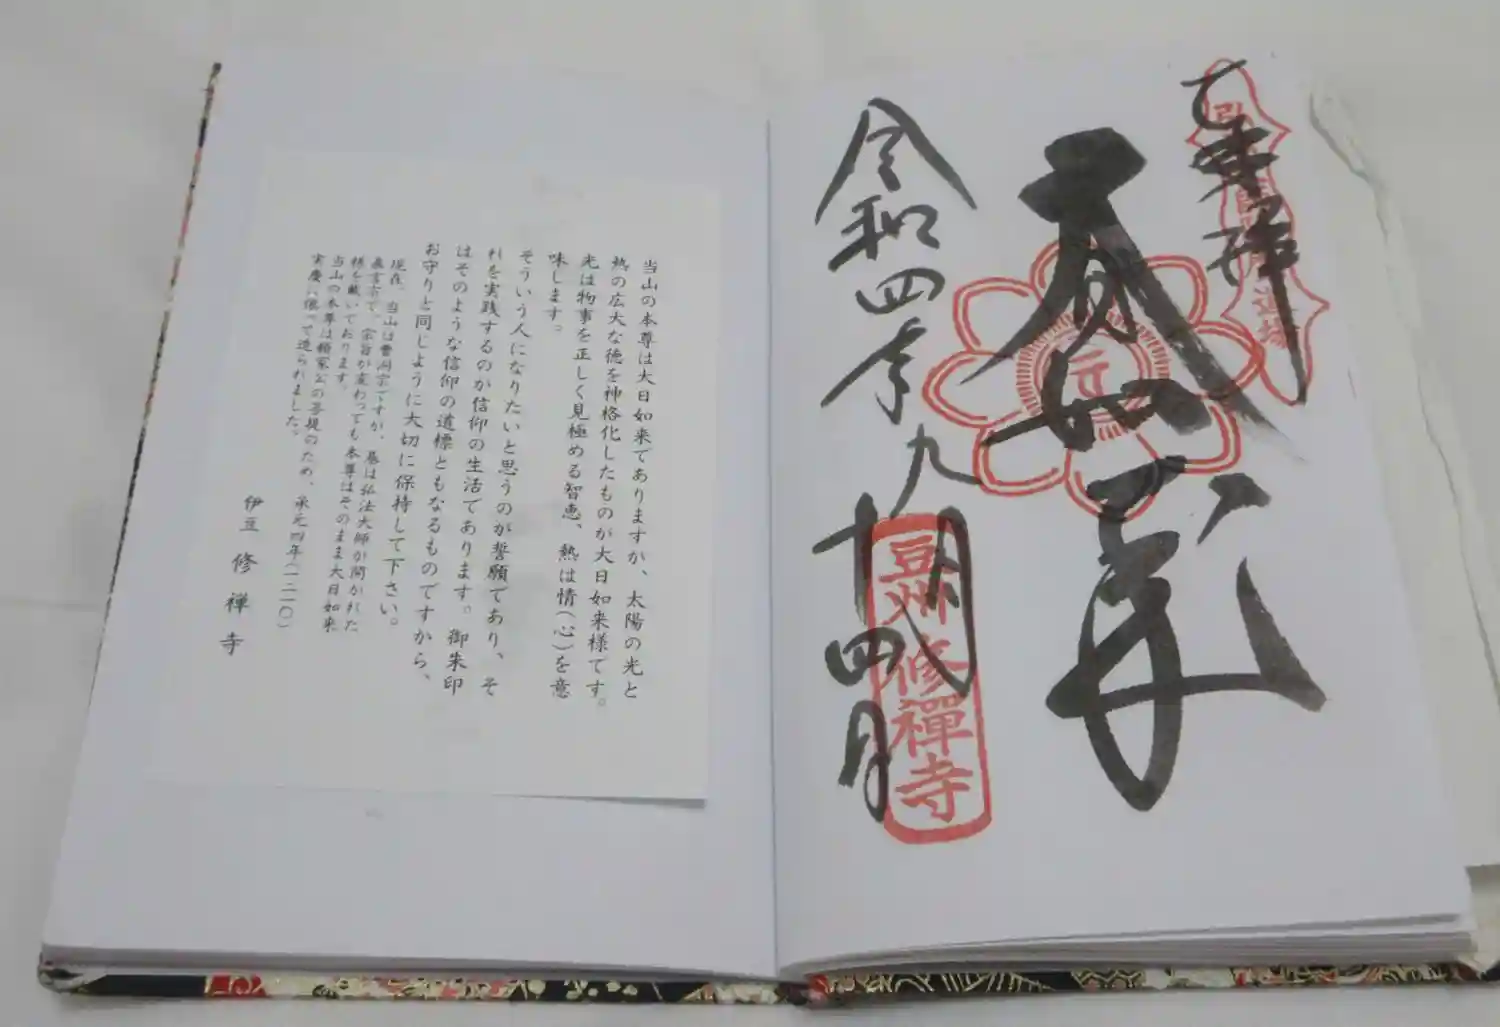 奉拝
大日如来
令和四年九月
十四日
豆州修禅寺
当山の本尊は大日如来でありますが、太陽の光と
熱の広大な徳を神格化したものが大日如来様です。
光は物事を正しく見極める智恵、熱は情(心)を意
味します。
そういう人になりたいと思うのが誓願であり、そ
れを実践するのが信仰の生活であります。御朱印
はそのような信仰の道標ともなるものですから、
お守りと同じように大切に保持して下さい。
現在、当山は曹洞宗ですが、基は弘法大師が開かれた
真言宗で、宗旨が変わっても本尊はそのまま大日如来
様を戴いております。
当山の本尊は頼家公の菩提のため、承元四年(一二一〇)
実慶に依って造られました。
伊豆 修禅寺